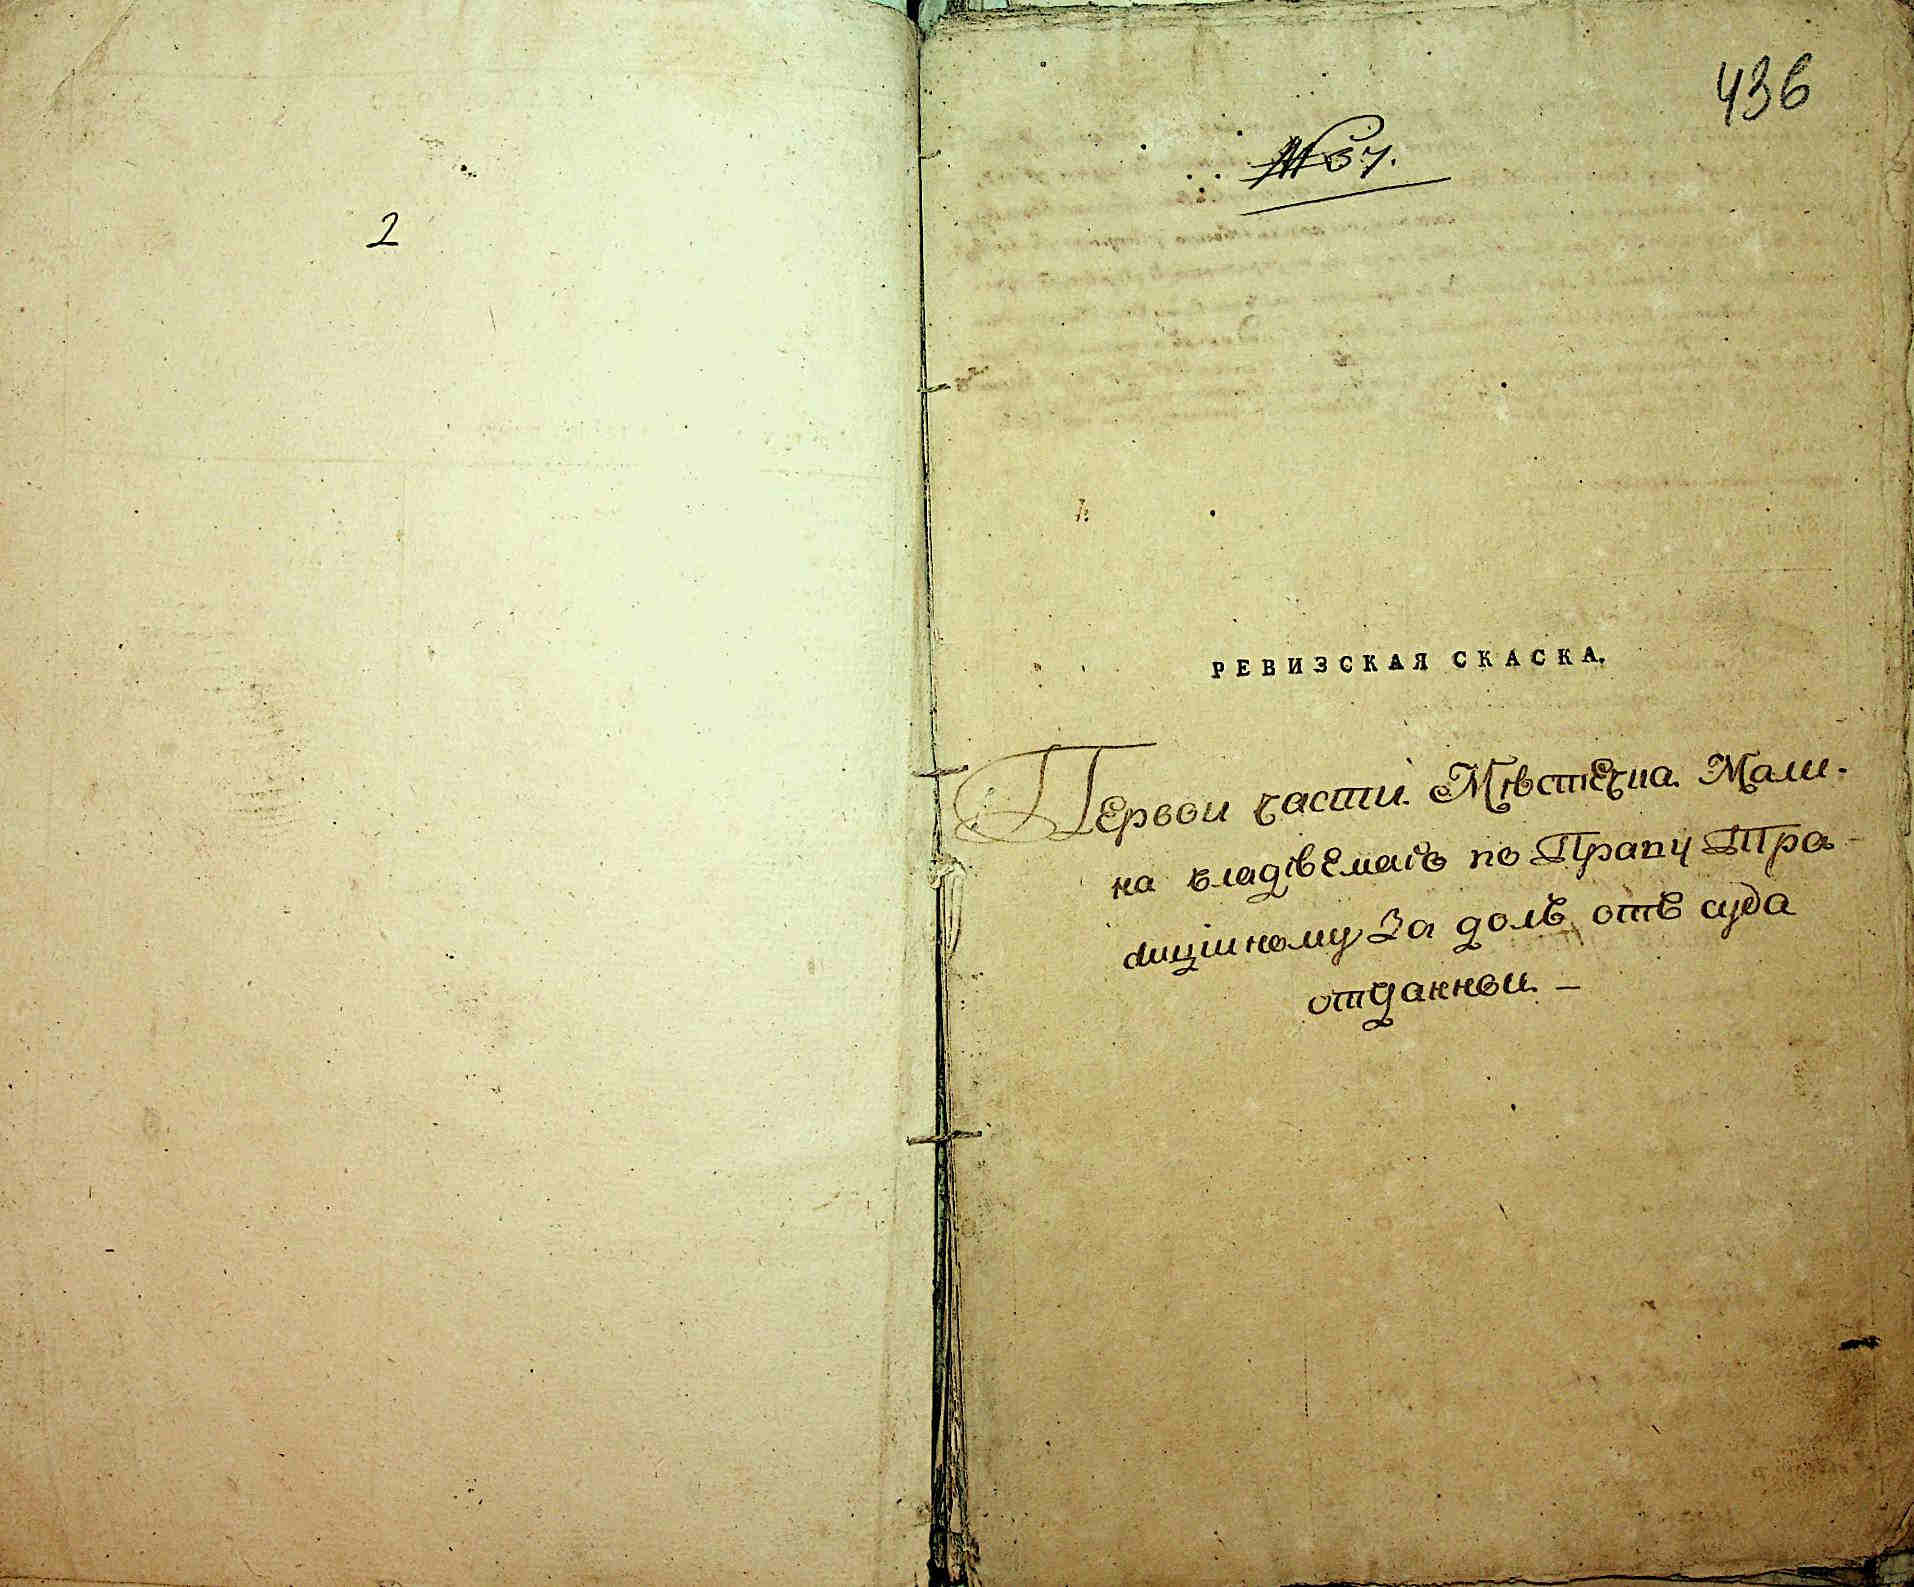 2
436
№ 67.
РЕВИЗСКАЯ СКАСКА.
Первои части Мѣстечка Мали-
на владѣемаго по Праву Тра-
диційному За долъ отъ суда
отданнои. —